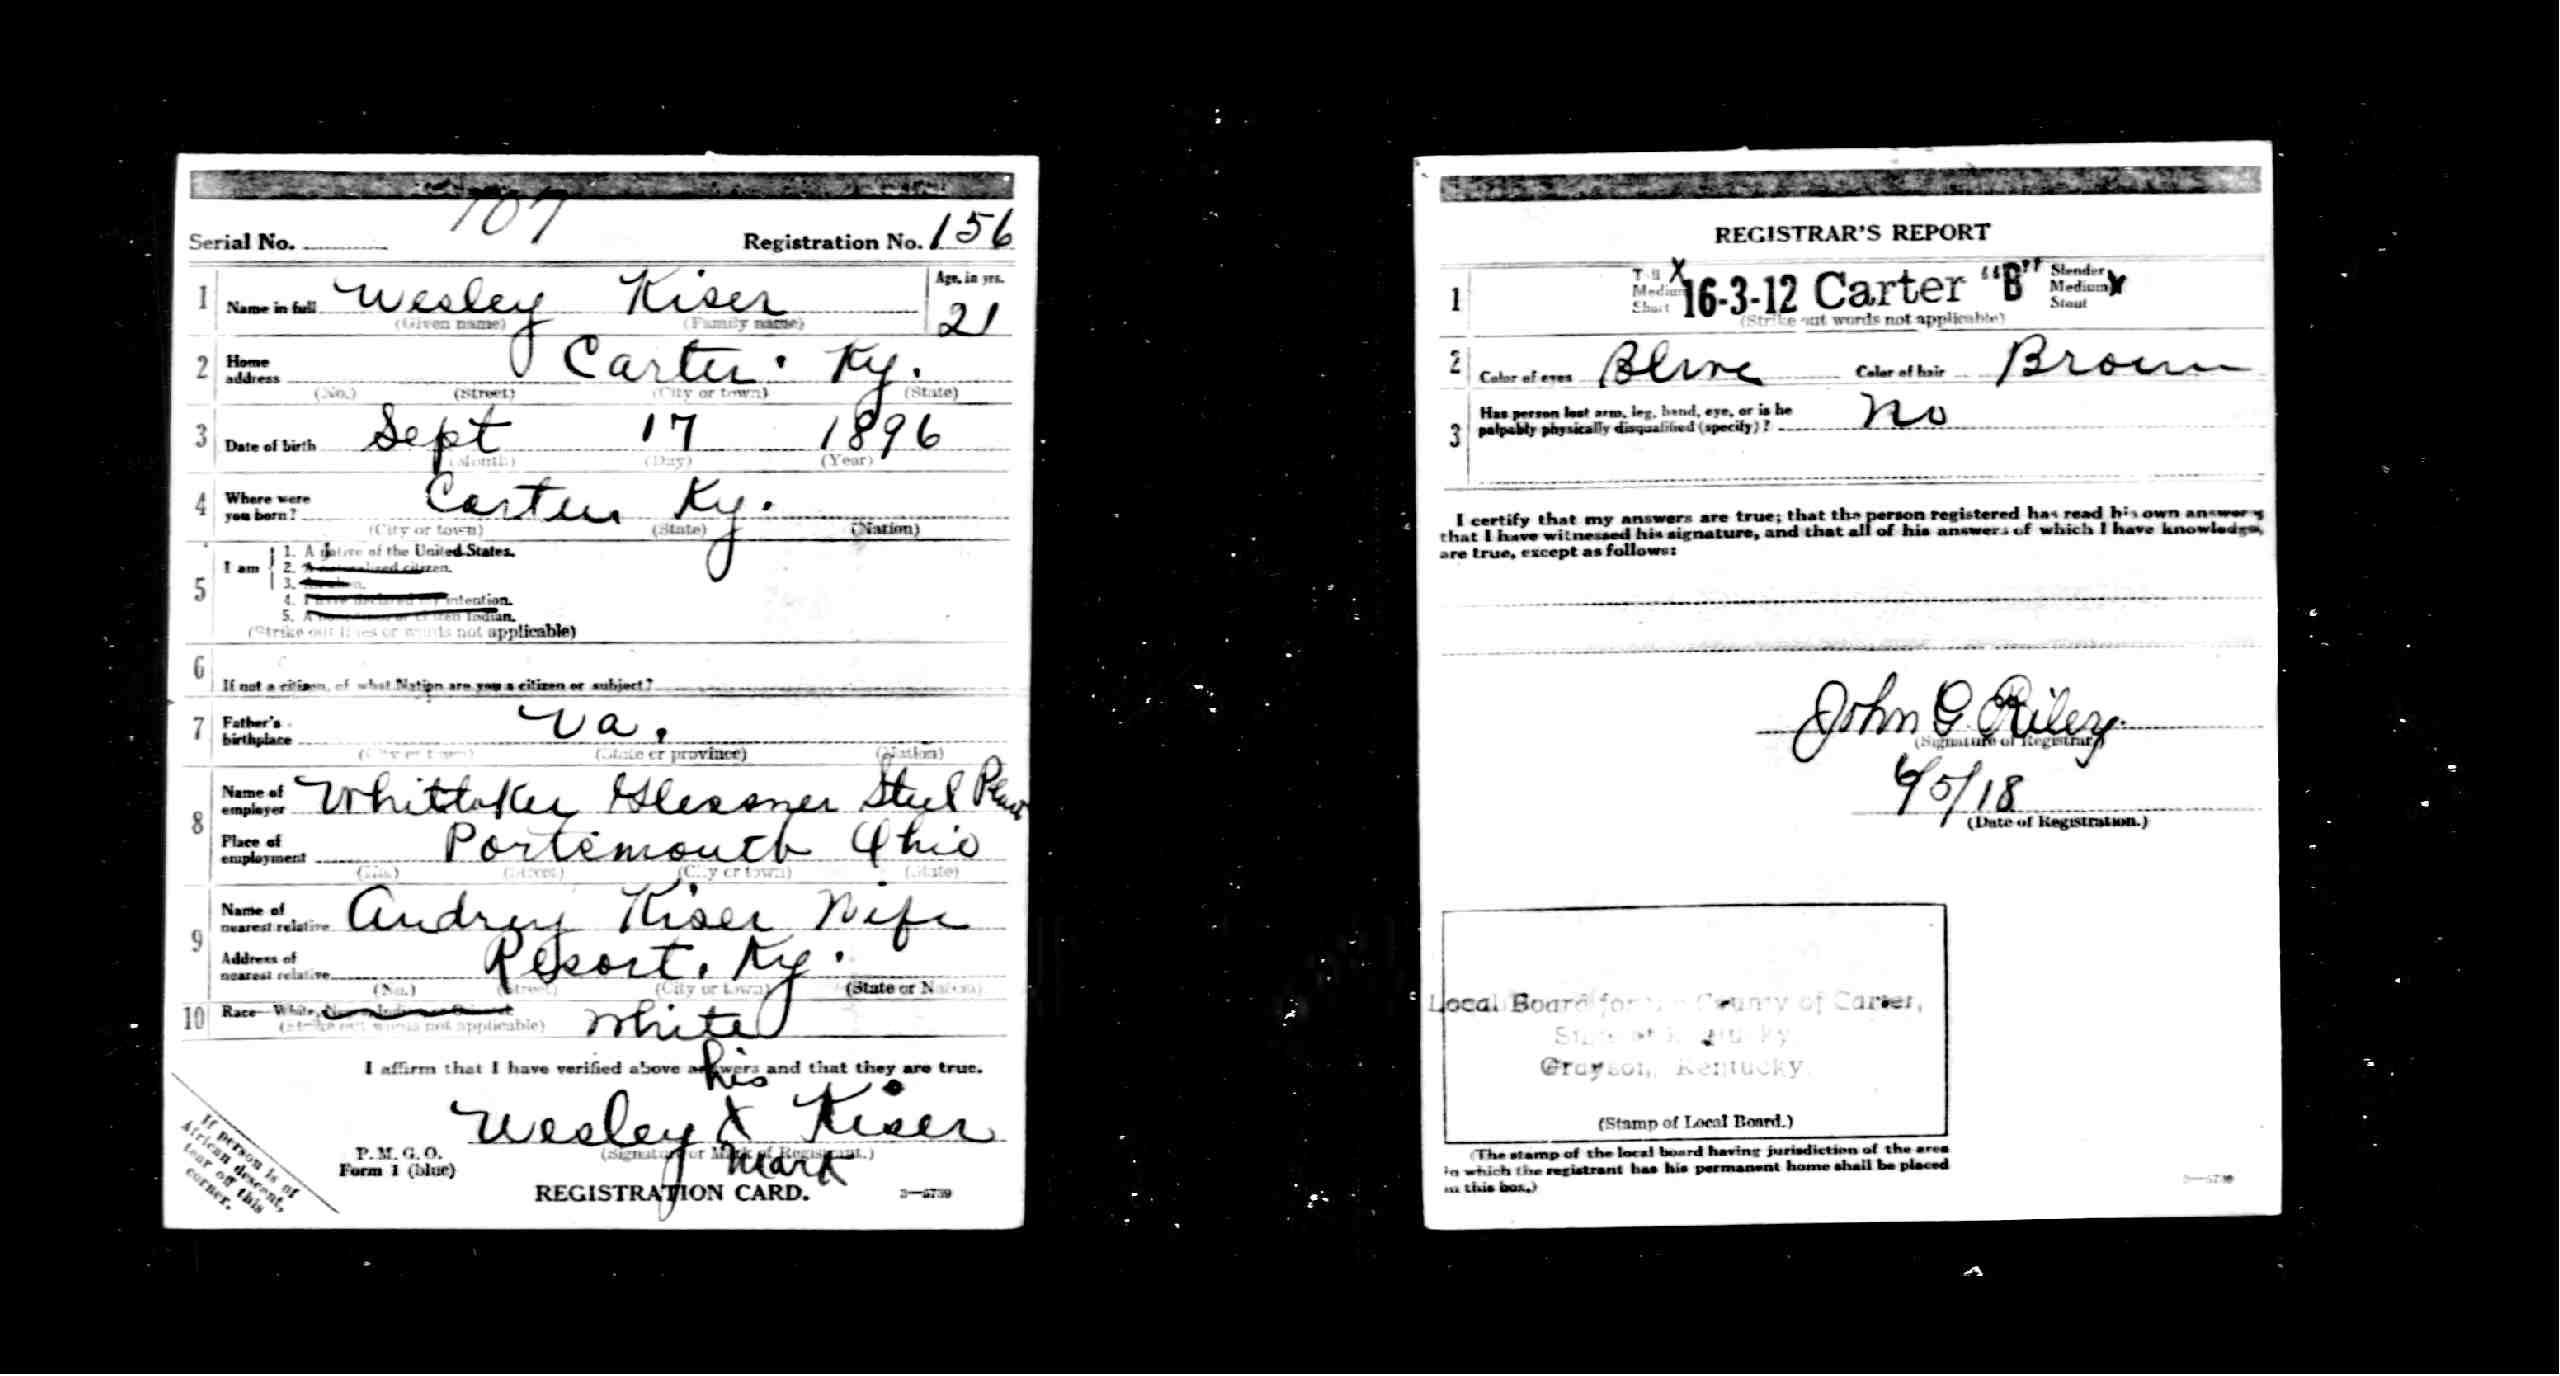 707
Serial No. Registration No. 156
1 Name in full Wesley Kiser Age, in yrs. 21
(Given name) (Family name)
2 Home address Carter. Ky.
(No.) (Street) (City or town) (State)
3 Date of birth Sept 17 1896
(Month) (Day) (Year)
4 Where were you born? Carter Ky.
(City or town) (State) (Nation)
5 I am
1. A native of the United States.
2. A naturalized citizen.
3. An alien.
4. I have declared my intention.
5. A noncitizen or citizen Indian.
(Strike out lines or words not applicable)
6 If not a citizen, of what Nation are you a citizen or subject?
7 Father's birthplace Va.
(City or town) (State or province) (Nation)
8 Name of employer Whittaker Glessner Steel
Place of employment Portsmouth Ohio
(No.) (Street) (City or town) (State)
9 Name of nearest relative Audrey Kiser Wife
Address of nearest relative Resort. Ky.
(No.) (Street) (City or town) (State or Nation)
10 Race—White, White
(Strike out words not applicable)
I affirm that I have verified above answers and that they are true.
his
Wesley X Kiser
(Signature or Mark of Registrant.)
mark
P. M. G. O.
Form 1 (blue)
REGISTRATION CARD.
3—5739
If person is of
African descent,
tear off this
corner.
REGISTRAR'S REPORT
1 Tall X Medium Short 16-3-12 Carter "B" Slender Medium X Stout
(Strike out words not applicable)
2 Color of eyes Blue Color of hair Brown
3 Has person lost arm, leg, hand, eye, or is he
palpably physically disqualified (specify)? No
I certify that my answers are true; that the person registered has read his own answers
that I have witnessed his signature, and that all of his answers of which I have knowledge,
are true, except as follows:
John G Riley
(Signature of Registrar)
6/5/18
(Date of Registration.)
Local Board for the County of Carter,
State of Kentucky
Grayson, Kentucky.
(Stamp of Local Board.)
(The stamp of the local board having jurisdiction of the area
in which the registrant has his permanent home shall be placed
in this box.)
3—5739